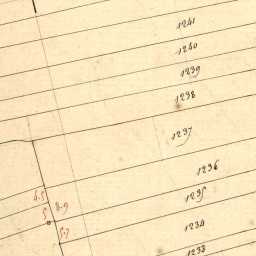 1241
1240
1239
1238
1237
1236
1235
1234
1233
5.5
8.9
5
5.7